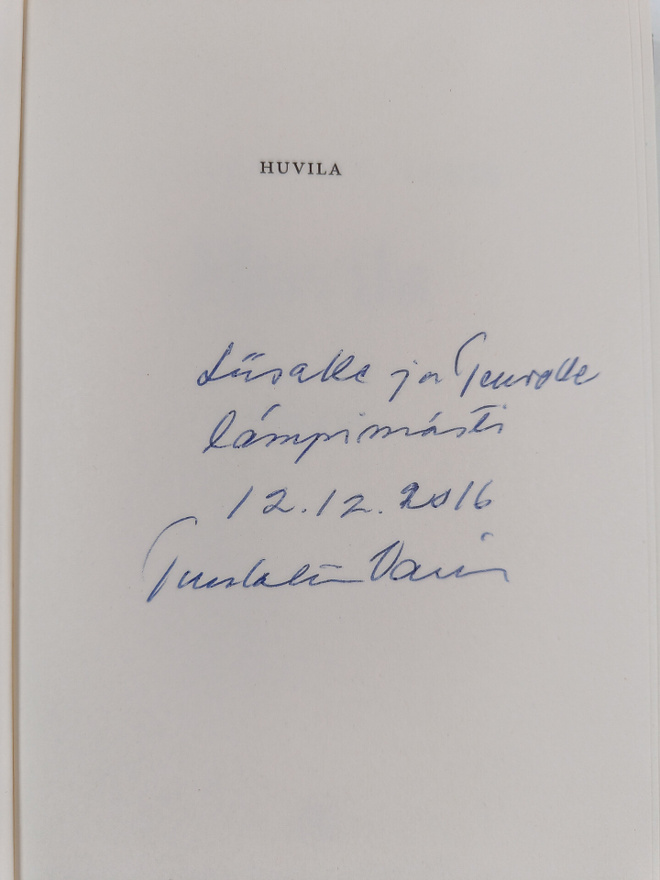 HUVILA
Liisalle ja Teurolle
lämpimästi
12.12.2016